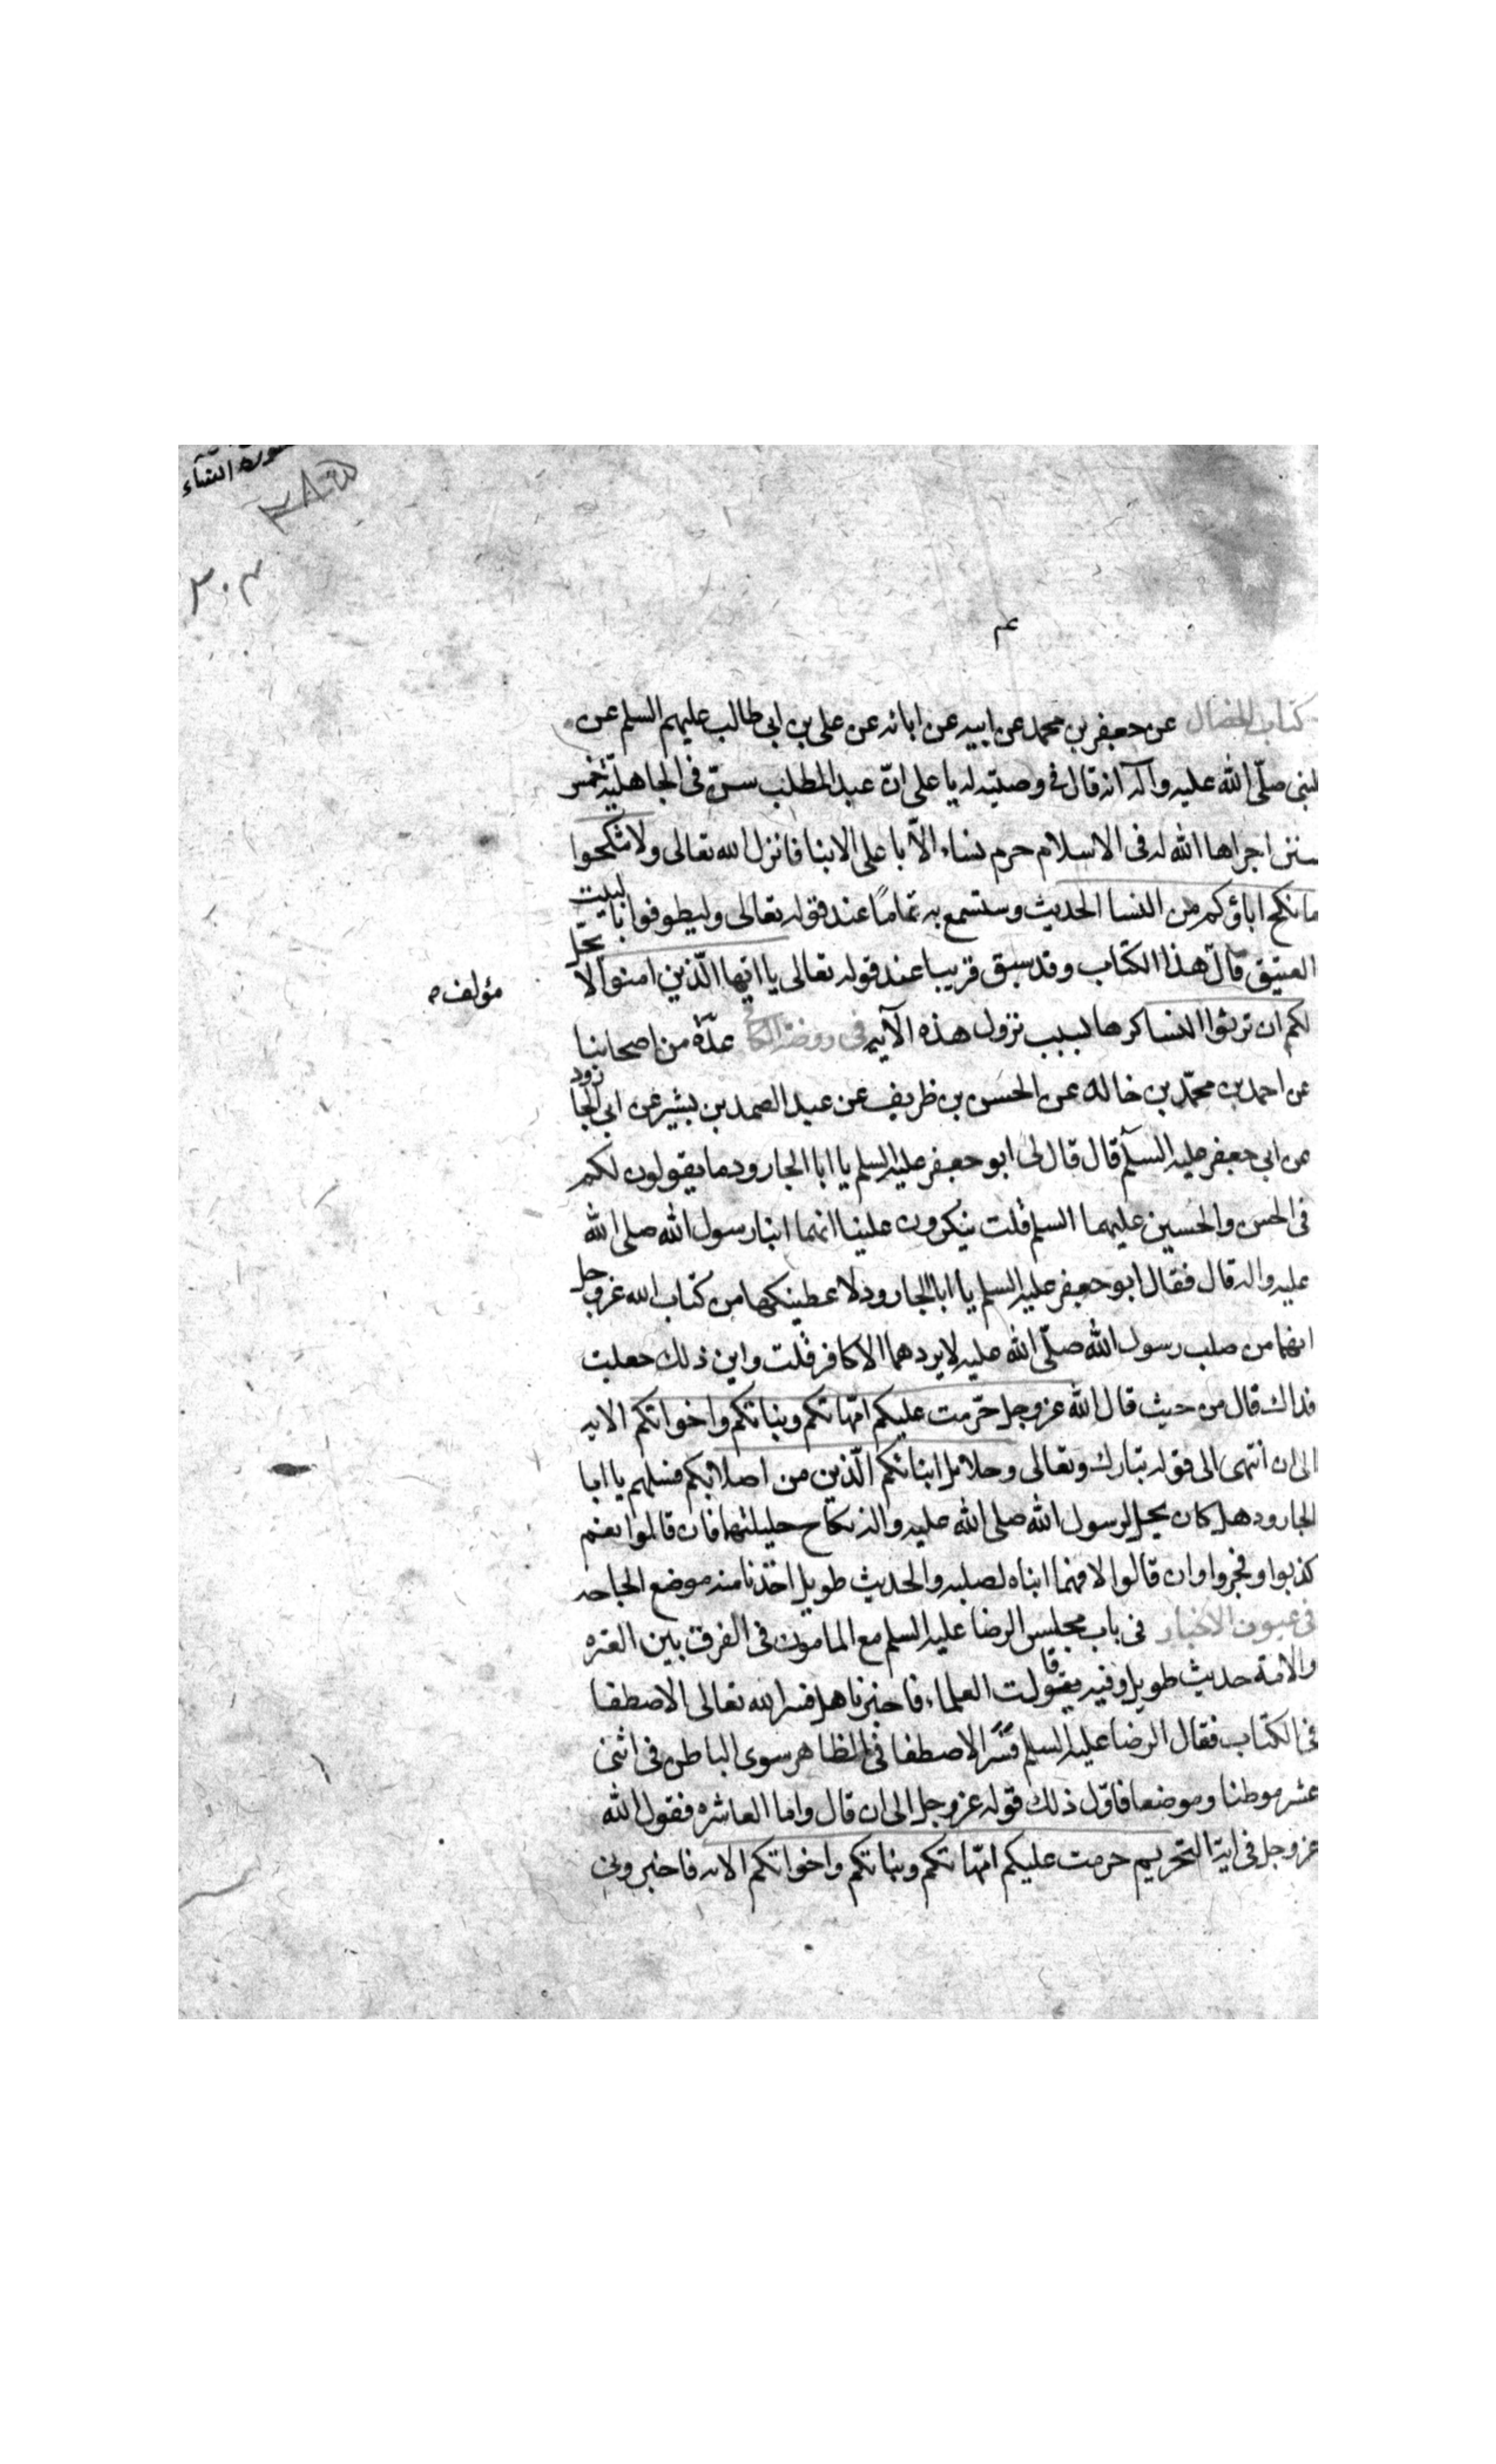 سورة النساء
٣٠٣
كتاب الخصال عن جعفر بن محمد عن ابيه عن ابائه عن على بن ابى طالب عليهم السلم عن
لنبى صلّى الله عليه وآله انه قال فى وصيته له يا على انّ عبد المطلب سنّ فى الجاهليّة خمس
سنن اجراها الله له فى الاسلام حرم نساء الآبا على الابنا فانزل الله تعالى ولا تنكحوا
ما نكح اباؤكم من النسا الحديث وستسمع به تمامًا عند قوله تعالى وليطوفوا بالبيت
العتيق قال هذا الكتاب وقد سبق قريبا عند قوله تعالى يا ايها الّذين امنوا لا يحلّ
لكم ان ترثوا النسا كرها لسبب نزول هذه الآيه فى روضة الكافى عدّة من اصحابنا
مؤلف
عن احمد بن محمّد بن خالد عن الحسن بن ظريف عن عبد الصمد بن بشير عن ابى الجارود
عن ابى جعفر عليه السلم قال قال لى ابو جعفر عليه السلم يا ابا الجارود ما يقولون لكم
فى الحسن والحسين عليهما السلم قلت ينكرون علينا انهما ابنا رسول الله صلى الله
عليه واله قال فقال ابو جعفر عليه السلم يا ابا الجارود لاعطينكها من كتاب الله عزوجل
انهما من صلب رسول الله صلّى الله عليه لا يردهما الا كافر قلت واين ذلك جعلت
فداك قال من حيث قال الله عزوجل حرّمت عليكم امّهاتكم وبناتكم واخواتكم الايه
الى ان انتهى الى قوله تبارك وتعالى وحلائل ابنائكم الّذين من اصلابكم فسلهم يا ابا
الجارود هل كان يحل لرسول الله صلى الله عليه واله نكاح حليلتهما فان قالوا نعم
كذبوا وفجروا وان قالوا لا فهما ابناه لصلبه والحديث طويل اخذنا منه موضع الحاجه
فى عيون الاخبار فى باب مجلس الرضا عليه السلم مع المامون فى الفرق بين العتره
والامة حديث طويل وفيه قالت العلماء فاخبرنا هل فسر الله تعالى الاصطفا
فى الكتاب فقال الرضا عليه السلم فسّر الاصطفا فى الظاهر سوى الباطن فى اثنى
عشر موطنا وموضعا فاوّل ذلك قوله عزوجل الى ان قال واما العاشره فقول الله
عزوجل فى اية التحريم حرمت عليكم امّهاتكم وبناتكم واخواتكم الايه فاخبرونى